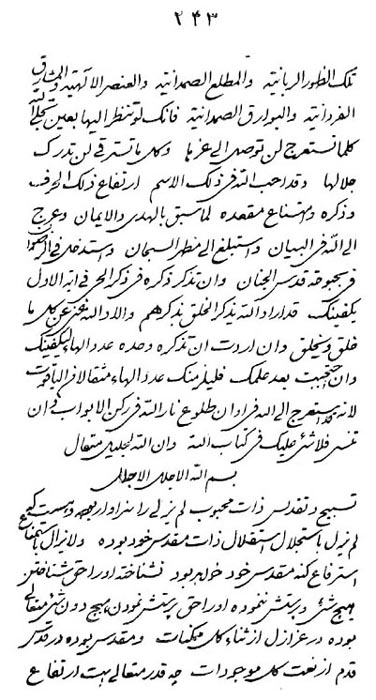 ۲۴۳
تلک الظهور الربانیة والمطلع الصمدانیة والعنصر الآلهیة والمشارق
الفردانیة والبوارق الصمدانیة فانک لو تنظر الیها بعین
کلما تستعرج لن توصل الی عزها وکل ما تسترقی لن تدرک
جلالها وقد احب الله فی ذلک الاسم ارتفاع ذلک الحرف
وذکره وامتناع مقعده لما سبق بالهدی والایمان وعرج
الی الله فی البیان وستبلغ الی مظهر السبحان وستدخل فی
فی بحبوحة قدس الجنان وان تذکر ذکره فی ذکر الحی فی ابه الاول
یکفینک قد اراد الله یذکر الخلق بذکرهم والا والله غنی عن کل ما
خلق ویخلق وان اردت ان تذکره وحده عدد الهاء لیکفینک
وان احتجبت بعد علمک فلیلزمنک عدد الهاء مثقالا من الیاقوت
لانه یستعرج الی الله فی اوان طلوع نار الله فی رکن الابواب وان
تنسی فلا شیء علیک فی کتاب الله وان الله لجلیل متعال
بسم الله الاجل الاجل
تسبیح و تقدیس ذات محبوب لم یزلی را سزاوار بوده و هست که
لم یزل باستجلال استقلال ذات مقدس خود بوده ولا یزال باستمناع
استرفاع کنه مقدس خود خواهد بود نشناخته او را حق شناختن
هیچ شیء و پرستش ننموده او را حق پرستش نمودن هیچ دون شیء متعالی
بوده در عز ازل از ثناء کل ممکنات و مقدس بوده در قدس
قدم از نعت کل موجودات چه قدر متعالی است ارتفاع